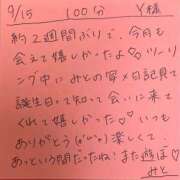 9/15 100分 Y様
約2週間ぶりで、今月も
会えて嬉しかったよ♡ツーリ
ング中にみとの写メ日記見て
誕生日って知って会いに来て
くれて嬉しかった♡いつも
ありがとう(がいい)楽しくて
あっという間だったね!また遊ぼ♡
みと